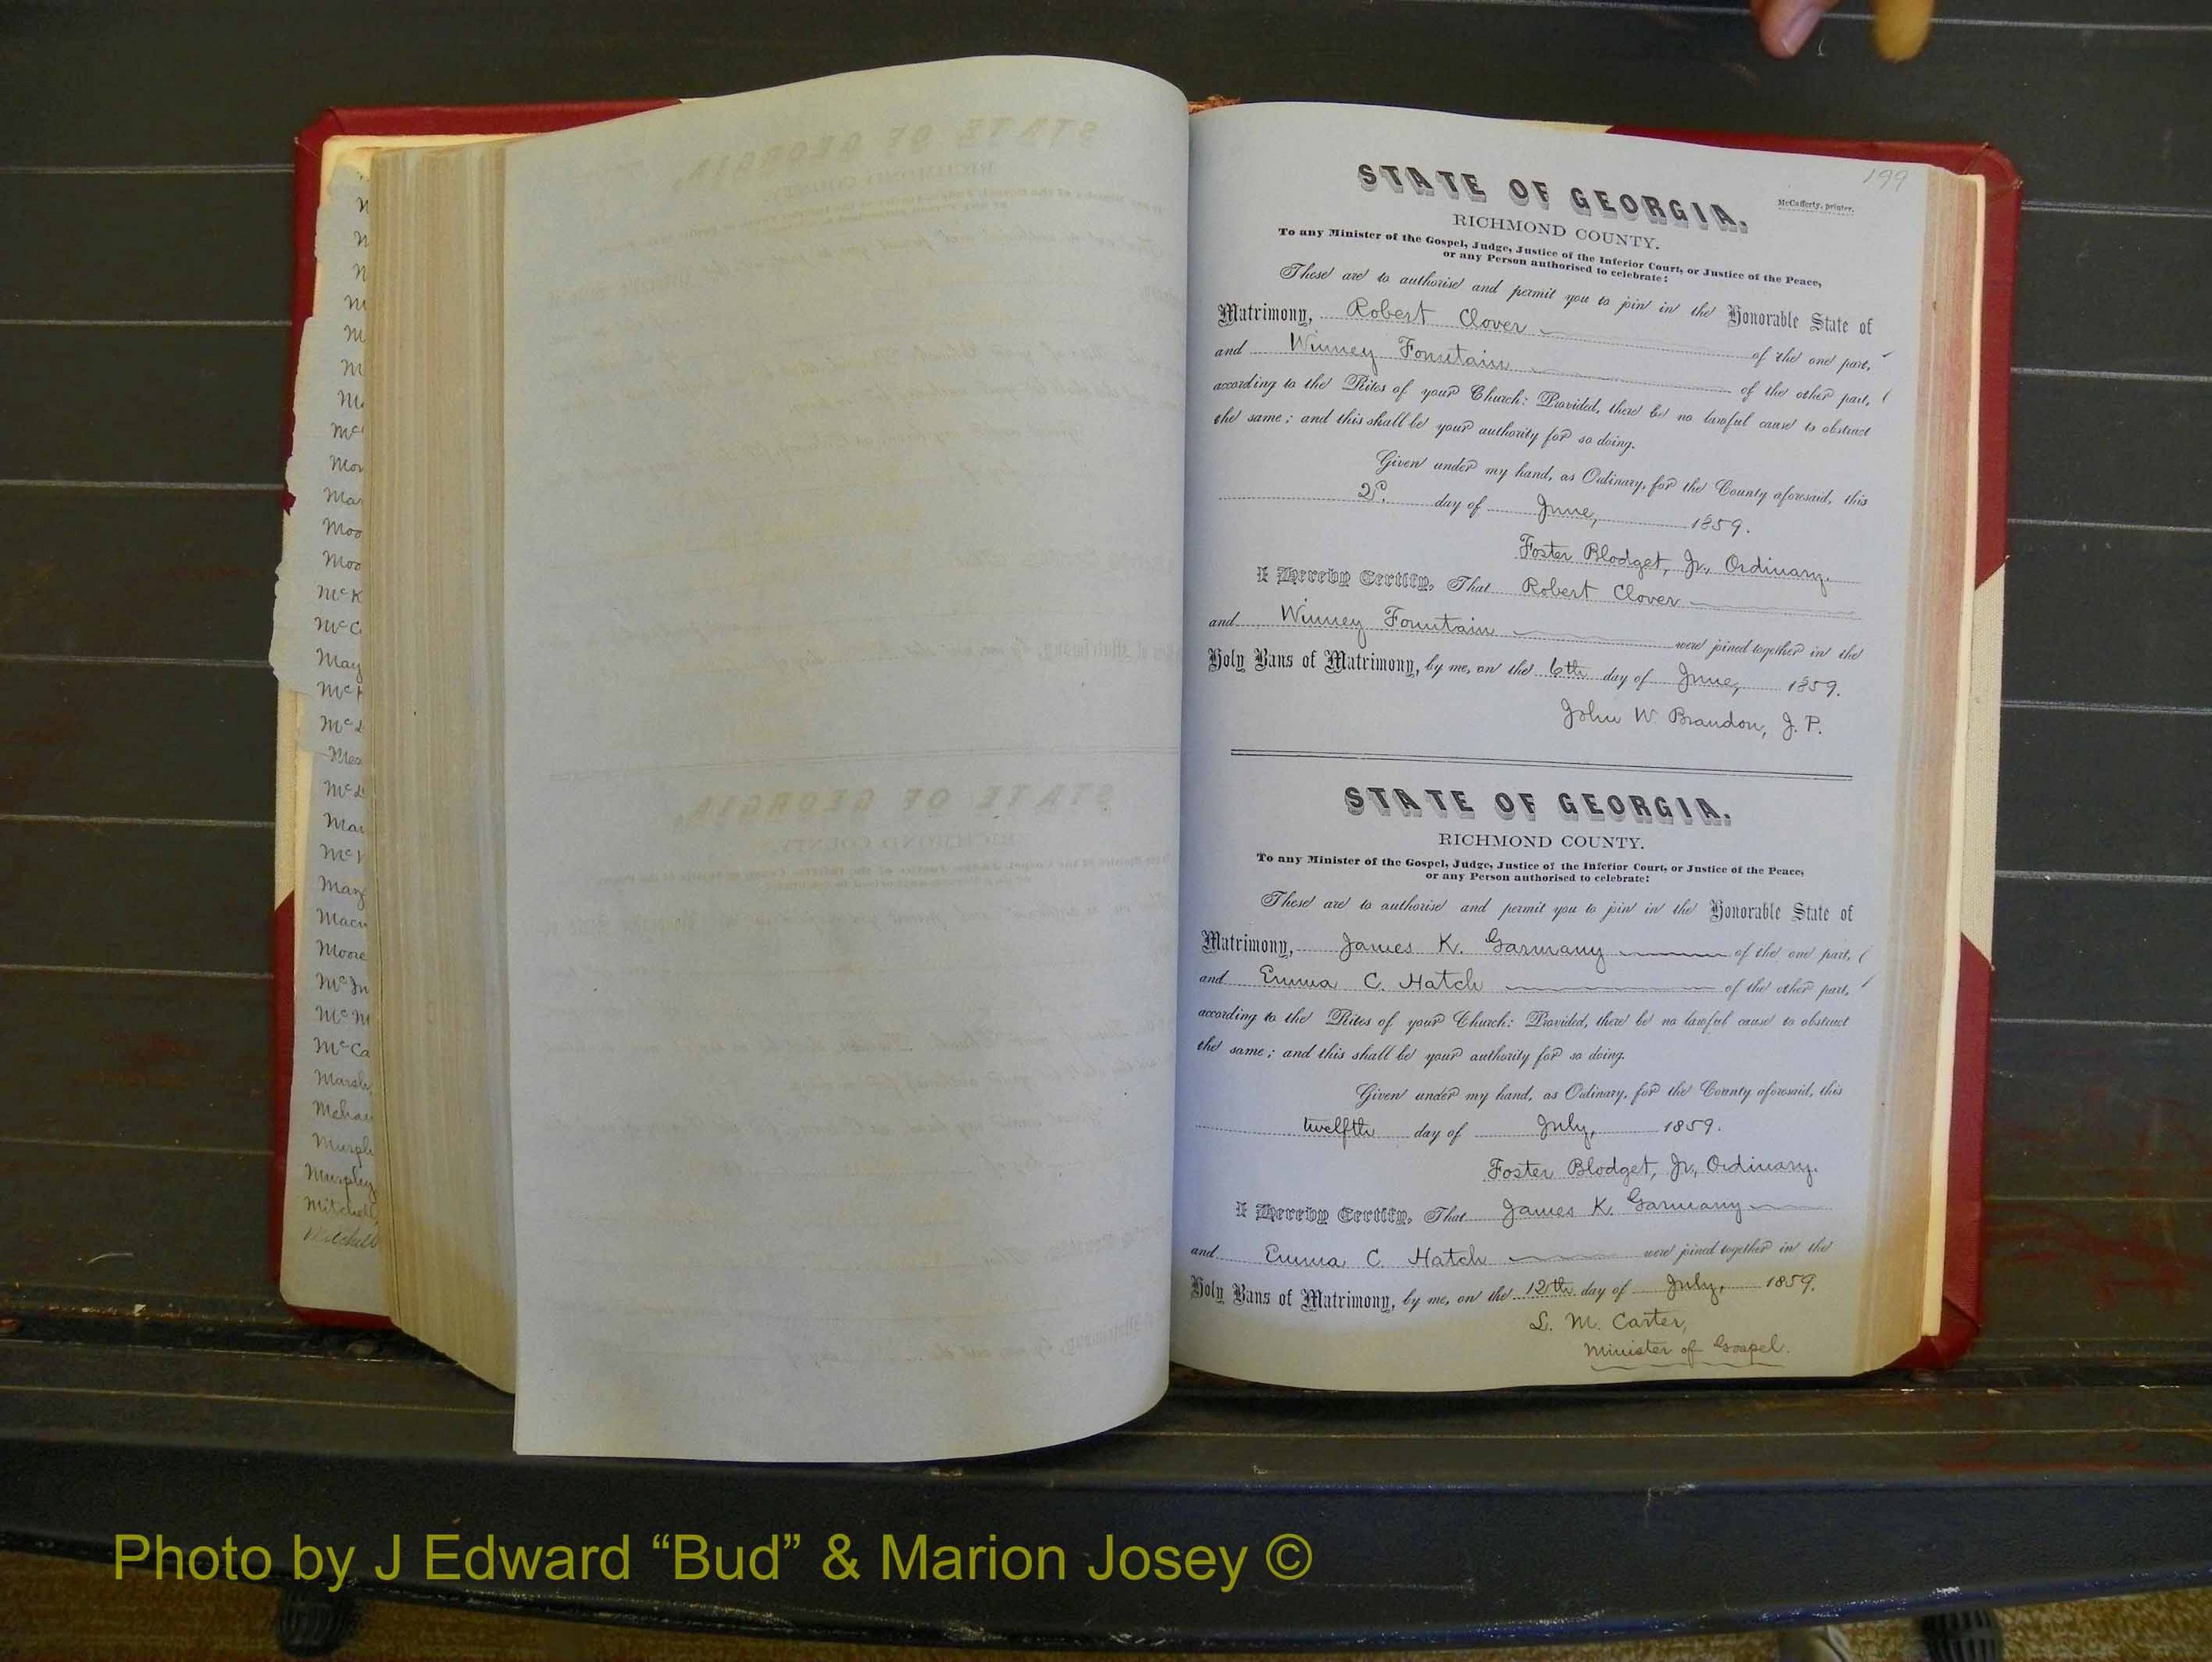 199
STATE OF GEORGIA.
McCafferty, printer.
RICHMOND COUNTY.
To any Minister of the Gospel, Judge, Justice of the Inferior Court, or Justice of the Peace,
or any Person authorised to celebrate:
These are to authorise and permit you to join in the Honorable State of
Matrimony, Robert Clover of the one part,
and Winney Fountain of the other part,
according to the Rites of your Church: Provided, there be no lawful cause to obstruct
the same; and this shall be your authority for so doing.
Given under my hand, as Ordinary, for the County aforesaid, this
day of June, 1859.
Foster Blodget, Jr., Ordinary.
I Hereby Certify, That Robert Clover
and Winney Fountain were joined together in the
Holy Bans of Matrimony, by me, on the 6th day of June, 1859.
John W. Brandon, J. P.
STATE OF GEORGIA.
RICHMOND COUNTY.
To any Minister of the Gospel, Judge, Justice of the Inferior Court, or Justice of the Peace,
or any Person authorised to celebrate:
These are to authorise and permit you to join in the Honorable State of
Matrimony, James K. Garmany of the one part,
and Emma C. Hatch of the other part,
according to the Rites of your Church: Provided, there be no lawful cause to obstruct
the same; and this shall be your authority for so doing.
Given under my hand, as Ordinary, for the County aforesaid, this
twelfth day of July, 1859.
Foster Blodget, Jr., Ordinary.
I Hereby Certify, That James K. Garmany
and Emma C. Hatch were joined together in the
Holy Bans of Matrimony, by me, on the 12th day of July, 1859.
L. M. Carter,
Minister of Gospel.
May
Moore
Murphy
Mitchell
Mitchell
Photo by J Edward “Bud” & Marion Josey ©